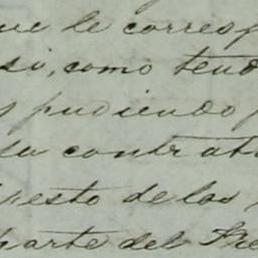 ue le corresp
si, como tend
s pudiendo p
su contrat
resto de los
parte del Pre